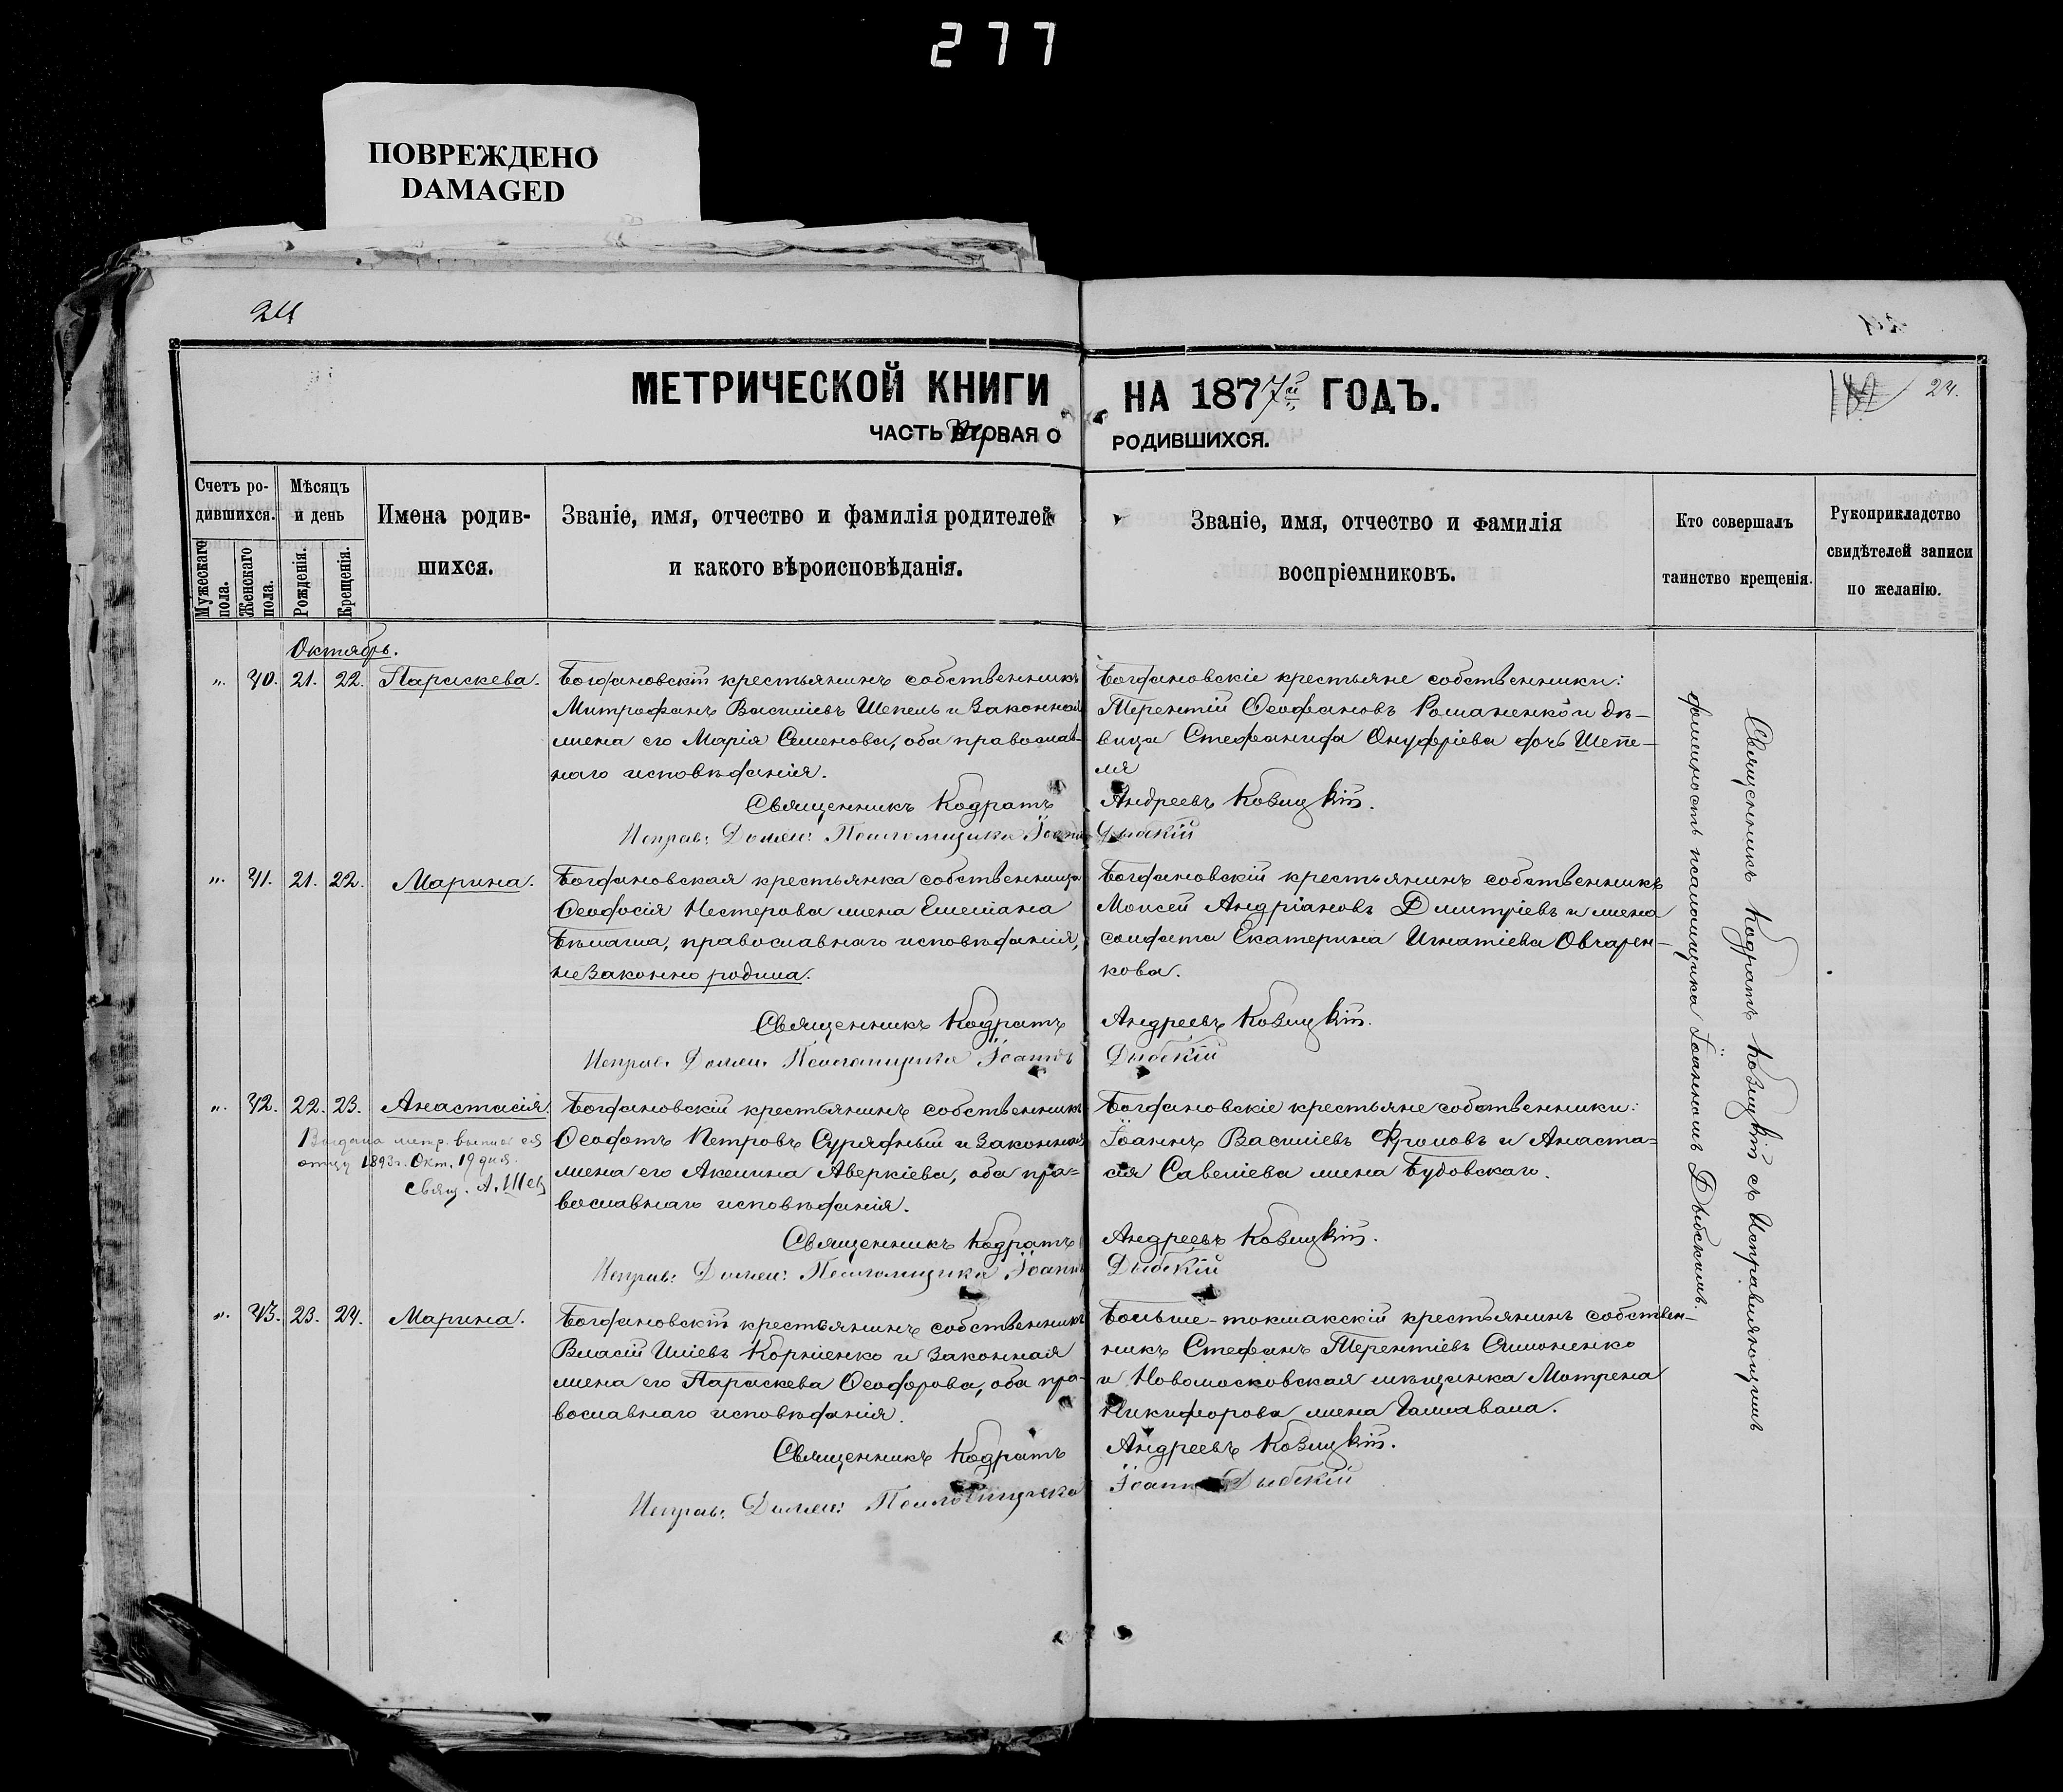 277
ПОВРЕЖДЕНО
DAMAGED
24
МЕТРИЧЕСКОЙ КНИГИ НА 1877й ГОДЪ.
24.
ЧАСТЬ ВТОРАЯ О РОДИВШИХСЯ.
Счетъ ро-
дившихся.
Мужескаго пола.
Женскаго пола.
Мѣсяцъ
и день
Рожденія.
Крещенія.
Имена родив-
шихся.
Званіе, имя, отчество и фамилія родителей
и какого вѣроисповѣданія.
Званіе, имя, отчество и фамилія
воспріемниковъ.
Кто совершалъ
таинство крещенія.
Рукоприкладство
свидѣтелей записи
по желанію.
Октябрь.
„ 40. 21. 22. Параскева.
Богдановскій крестьянинъ собственникъ
Митрофанъ Василіевъ Шепель и законная
жена его Марія Семенова, оба православ-
наго исповѣданія.
Богдановскіе крестьяне собственники:
Терентій Ѳеофановъ Романенко и дѣ-
вица Стефанида Онуфріева дочь Шепе-
ля
Священникъ Кодратъ Андреевъ Козицкій.
Исправ: Должн: Псаломщика Іоаннъ Дыбскій
„ 41. 21. 22. Марина.
Богдановская крестьянка собственница
Ѳеодосія Нестерова жена Емеліана
Бѣлаша, православнаго исповѣданія,
незаконно родила.
Богдановскій крестьянинъ собственникъ
Моисей Андріановъ Дмитріевъ и жена
солдата Екатерина Игнатіева Овчарен-
кова.
Священникъ Кодратъ Андреевъ Козицкій.
Исправ. Должн. Псаломщика Іоаннъ Дыбскій
„ 42. 22. 23. Анастасія.
Выдана метр. выпись ея
отцу 1893 г. Окт. 19 дня.
Свящ. А. Шев
Богдановскій крестьянинъ собственникъ
Ѳеодотъ Петровъ Сурядный и законная
жена его Акилина Аверкіева, оба пра-
вославнаго исповѣданія.
Богдановскіе крестьяне собственники:
Іоаннъ Василіевъ Фроловъ и Анаста-
сія Савеліева жена Будовскаго.
Священникъ Кодратъ Андреевъ Козицкій.
Исправ: Должн: Псаломщика Іоаннъ Дыбскій
„ 43. 23. 24. Марина.
Богдановскій крестьянинъ собственникъ
Власій Иліевъ Корніенко и законная
жена его Параскева Ѳеодорова, оба пра-
вославнаго исповѣданія.
Больше-токмакскій крестьянинъ собствен-
никъ Стефанъ Терентіевъ Симоненко
и Новомосковская мѣщанка Мотрена
Никифорова жена
Священникъ Кодратъ Андреевъ Козицкій.
Исправ: Должн: Псаломщика Іоаннъ Дыбскій
Священникъ Кодратъ Козицкій съ Исправляющимъ
должность псаломщика Іоанномъ Дыбскимъ.